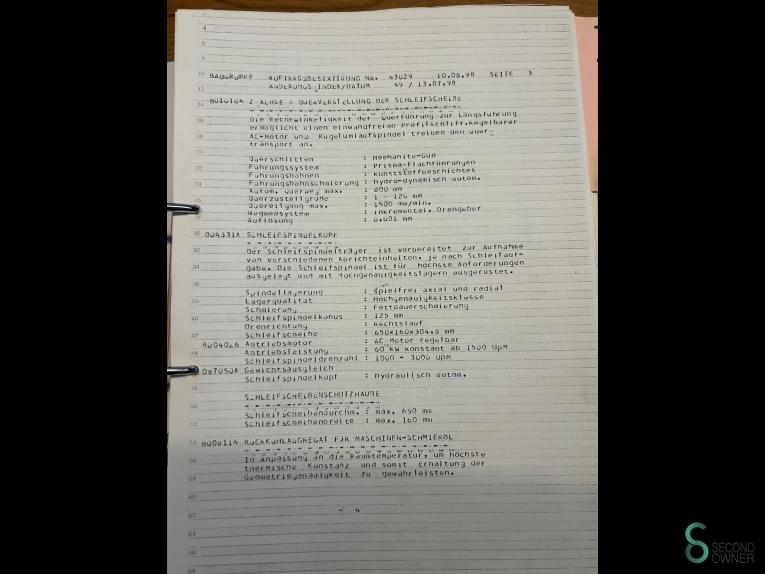 BAUGRUPPE AUFTRAGSBESTÄTIGUNG NR. 43029 10.06.99 SEITE 3
ÄNDERUNGS-INDEX/DATUM 49 / 13.07.99
Z-ACHSE = QUERVERSTELLUNG DER SCHLEIFSCHEIBE
Die Rechtwinkeligkeit der Querführung zur Längsführung
ermöglicht einen einwandfreien Profilschliff. Regelbarer
AC-Motor und Kugelumlaufspindel treiben den Quer-
transport an.
Querschlitten : Meehanite-Guß
Führungssystem : Prisma-Flachführungen
Führungsbahnen : kunststoffbeschichtet
Führungsbahnschmierung : hydro-dynamisch autom.
Autom. Querweg max. : 800 mm
Querzustellgröße : 1 - 126 mm
Quereilgang max. : 1500 mm/min.
Wegmeßsystem : inkremental. Drehgeber
Auflösung : 0,001 mm
004331A SCHLEIFSPINDELKOPF
Der Schleifspindelträger ist vorbereitet zur Aufnahme
von verschiedenen Abrichteinheiten, je nach Schleifauf-
gabe. Die Schleifspindel ist für höchste Anforderungen
ausgelegt und mit Hochgenauigkeitslagern ausgerüstet.
Spindellagerung : spielfrei axial und radial
Lagerqualität : Hochgenauigkeitsklasse
Schmierung : Fettdauerschmierung
Schleifspindelkonus : 125 mm
Drehrichtung : Rechtslauf
Schleifscheibe : 650x160x304.8 mm
Antriebsmotor : AC-Motor regelbar
Antriebsleistung : 60 kW konstant ab 1500 UpM
Schleifspindeldrehzahl : 1000 - 3000 UpM
087050A Gewichtsausgleich
Schleifspindelkopf : hydraulisch autom.
SCHLEIFSCHEIBENSCHUTZHAUBE
Schleifscheibendurchm. : max. 650 mm
Schleifscheibenbreite : max. 160 mm
RÜCKKÜHLAGGREGAT FÜR MASCHINEN-SCHMIERÖL
In Anpassung an die Raumtemperatur, um höchste
thermische Konstanz und somit Erhaltung der
Geometriegenauigkeit zu gewährleisten.
- 4
SECOND
OWNER